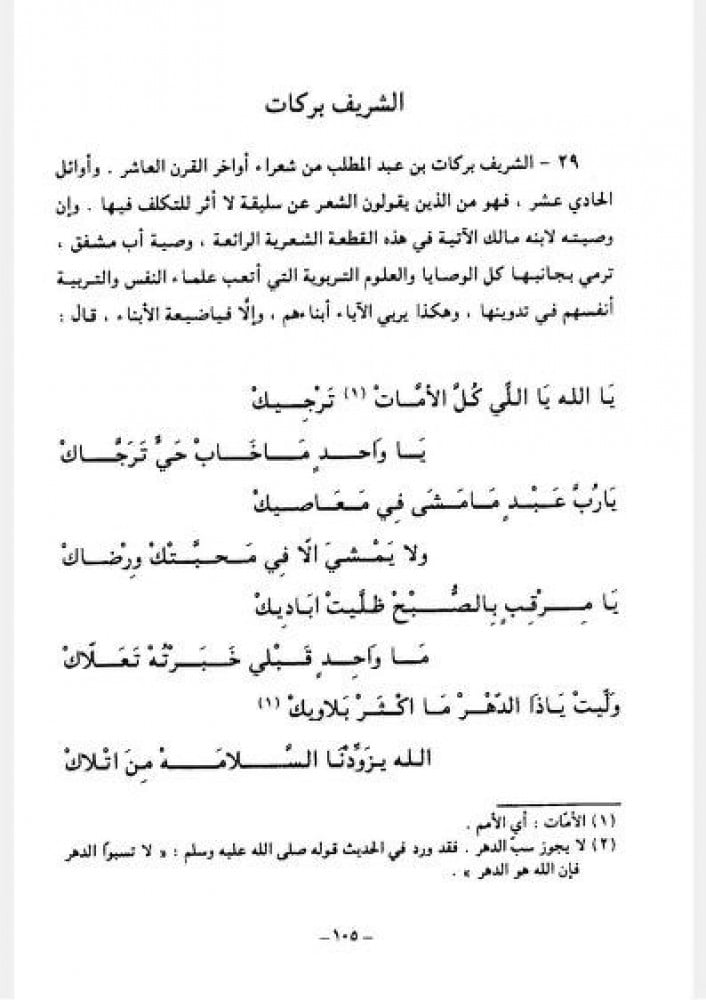 الشريف بركات
٢٩ - الشريف بركات بن عبد المطلب من شعراء أواخر القرن العاشر . وأوائل
الحادي عشر ، فهو من الذين يقولون الشعر عن سليقة لا أثر للتكلف فيها . وإن
وصيته لابنه مالك الآتية في هذه القطعة الشعرية الرائعة ، وصية أب مشفق ،
ترمي بجانيها كل الوصايا والعلوم التربوية التي أتعب علماء النفس والتربية
أنفسهم في تدوينها ، وهكذا يربي الآباء أبناءهم ، وإلّا فياضيعة الأبناء ، قال :
يَا الله يَا اللّي كُلَّ الأمَّاتْ (١) تَرْجِيكْ
يَا وَاحدٍ مَاخَابْ حَيٍّ تَرَجَّاكْ
يَارُبَّ عَبْدٍ مَامَشَى في مَعَاصيكْ
ولا يَمْشيَ الّا في مَحبَّتكْ ورِضْاكْ
يَا مِرْقبٍ بِالصُّبْحْ ظلَّيت ابَاديكْ
مَا وَاحِدٍ قَبْلي خَبَرْتُهْ تَعَلّاكْ
وَلَّيتْ يَاذَا الدّهْرْ مَا اكْثَرْ بَلاويكْ (١)
الله يزَوِّدْنَا السَّلامَهْ مِنَ اتْلاكْ
(١) الأمّات : أي الأمم .
(٢) لا يجوز سبّ الدهر . فقد ورد في الحديث قوله صلى الله عليه وسلم : « لا تسبوا الدهر
فإن الله هو الدهر » .
– ١٠٥ –